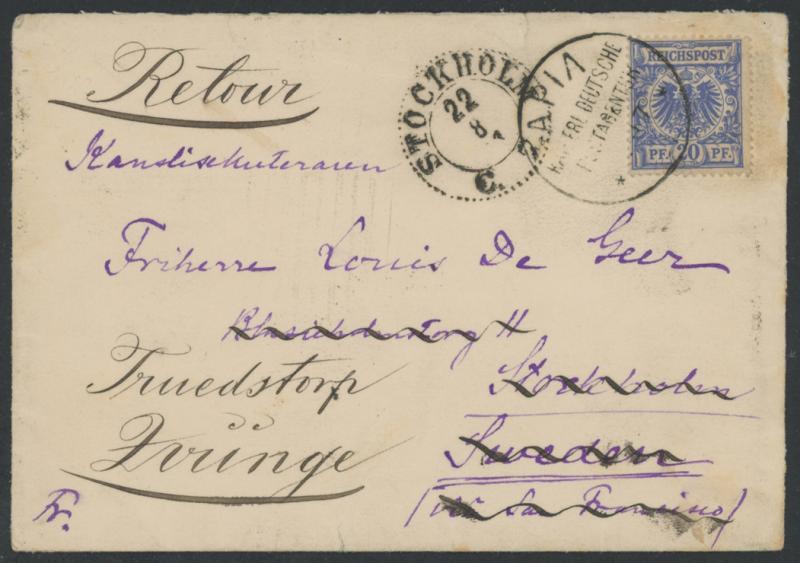 Retour
STOCKHOLM
22
8
C.
APIA
KAISERL. DEUTSCHE
POSTAGENTUR
REICHSPOST
PF. 20 PF.
Friherre Louis De Geer
11
Truedstorp
Stockholm
Qvinge
Sweden
Fr. (via San Francisco)